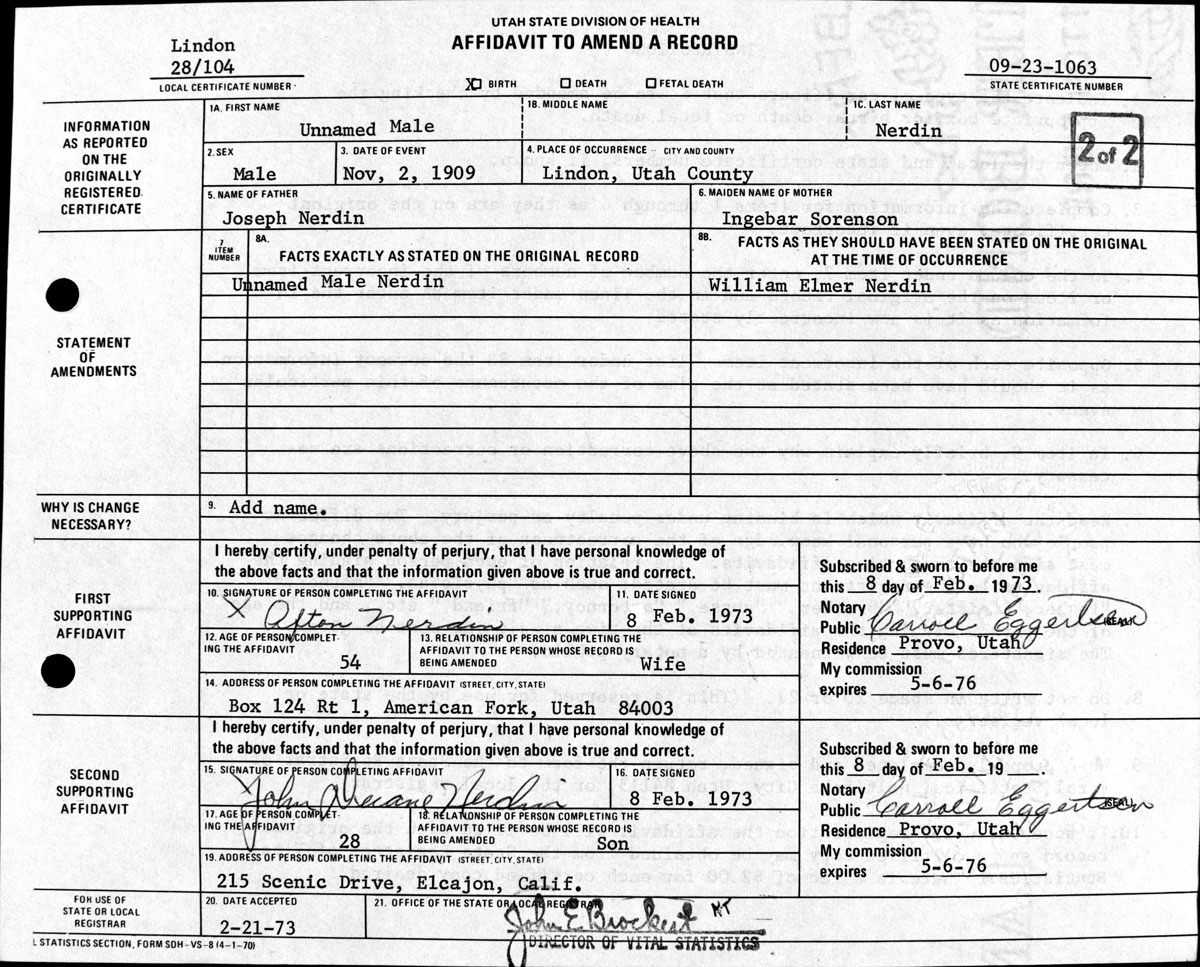 UTAH STATE DIVISION OF HEALTH
AFFIDAVIT TO AMEND A RECORD
Lindon
28/104
LOCAL CERTIFICATE NUMBER
X BIRTH DEATH FETAL DEATH
09-23-1063
STATE CERTIFICATE NUMBER
INFORMATION
AS REPORTED
ON THE
ORIGINALLY
REGISTERED
CERTIFICATE
1A. FIRST NAME 1B. MIDDLE NAME 1C. LAST NAME
Unnamed Male Nerdin
2 of 2
2. SEX 3. DATE OF EVENT 4. PLACE OF OCCURRENCE - CITY AND COUNTY
Male Nov, 2, 1909 Lindon, Utah County
5. NAME OF FATHER 6. MAIDEN NAME OF MOTHER
Joseph Nerdin Ingebar Sorenson
STATEMENT
OF
AMENDMENTS
7 ITEM NUMBER
8A. FACTS EXACTLY AS STATED ON THE ORIGINAL RECORD
8B. FACTS AS THEY SHOULD HAVE BEEN STATED ON THE ORIGINAL
AT THE TIME OF OCCURRENCE
Unnamed Male Nerdin William Elmer Nerdin
WHY IS CHANGE
NECESSARY?
9. Add name.
FIRST
SUPPORTING
AFFIDAVIT
I hereby certify, under penalty of perjury, that I have personal knowledge of
the above facts and that the information given above is true and correct.
10. SIGNATURE OF PERSON COMPLETING THE AFFIDAVIT 11. DATE SIGNED
X Afton Nerdin 8 Feb. 1973
12. AGE OF PERSON COMPLETING THE AFFIDAVIT 54
13. RELATIONSHIP OF PERSON COMPLETING THE
AFFIDAVIT TO THE PERSON WHOSE RECORD IS
BEING AMENDED Wife
14. ADDRESS OF PERSON COMPLETING THE AFFIDAVIT (STREET, CITY, STATE)
Box 124 Rt 1, American Fork, Utah 84003
Subscribed & sworn to before me
this 8 day of Feb. 1973
Notary
Public Carroll Eggertsen (SEAL)
Residence Provo, Utah
My commission
expires 5-6-76
SECOND
SUPPORTING
AFFIDAVIT
I hereby certify, under penalty of perjury, that I have personal knowledge of
the above facts and that the information given above is true and correct.
15. SIGNATURE OF PERSON COMPLETING AFFIDAVIT 16. DATE SIGNED
John Duane Nerdin 8 Feb. 1973
17. AGE OF PERSON COMPLETING THE AFFIDAVIT 28
18. RELATIONSHIP OF PERSON COMPLETING THE
AFFIDAVIT TO THE PERSON WHOSE RECORD IS
BEING AMENDED Son
19. ADDRESS OF PERSON COMPLETING THE AFFIDAVIT (STREET, CITY, STATE)
215 Scenic Drive, Elcajon, Calif.
Subscribed & sworn to before me
this 8 day of Feb. 19
Notary
Public Carroll Eggertsen (SEAL)
Residence Provo, Utah
My commission
expires 5-6-76
FOR USE OF
STATE OR LOCAL
REGISTRAR
20. DATE ACCEPTED 21. OFFICE OF THE STATE OR LOCAL REGISTRAR
2-21-73 John E Brockert
DIRECTOR OF VITAL STATISTICS
L STATISTICS SECTION, FORM SDH-VS-8 (4-1-70)